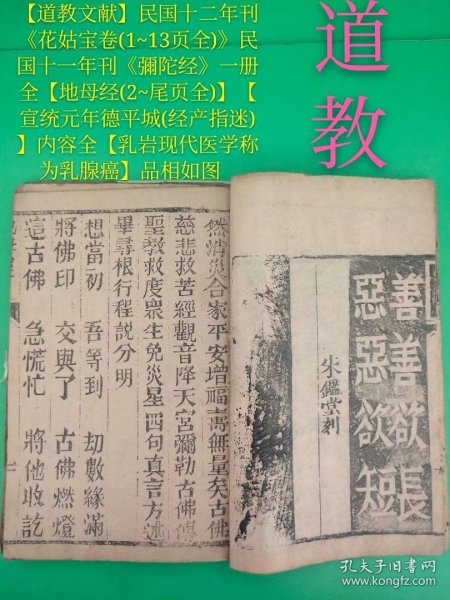 【道教文献】民国十二年刊
《花姑宝卷(1~13页全)》民
国十一年刊《彌陀经》一册
全【地母经(2~尾页全)】【
宣统元年德平城(经产指迷)
】内容全【乳岩现代医学称
为乳腺癌】品相如图
道教
善善欲長
惡惡欲短
朱鑑堂刻
然消災合家平安增福壽無量矣古佛
慈悲救苦經觀音降天宮彌勒古佛傳
聖教救度眾生免災星四句真言方述
畢尋根行程說分明
想當初 吾等到 劫數緣滿
將佛印 交與了 古佛燃燈
這古佛 急慌忙 將他收訖
孔夫子旧书网
www.kongfz.com